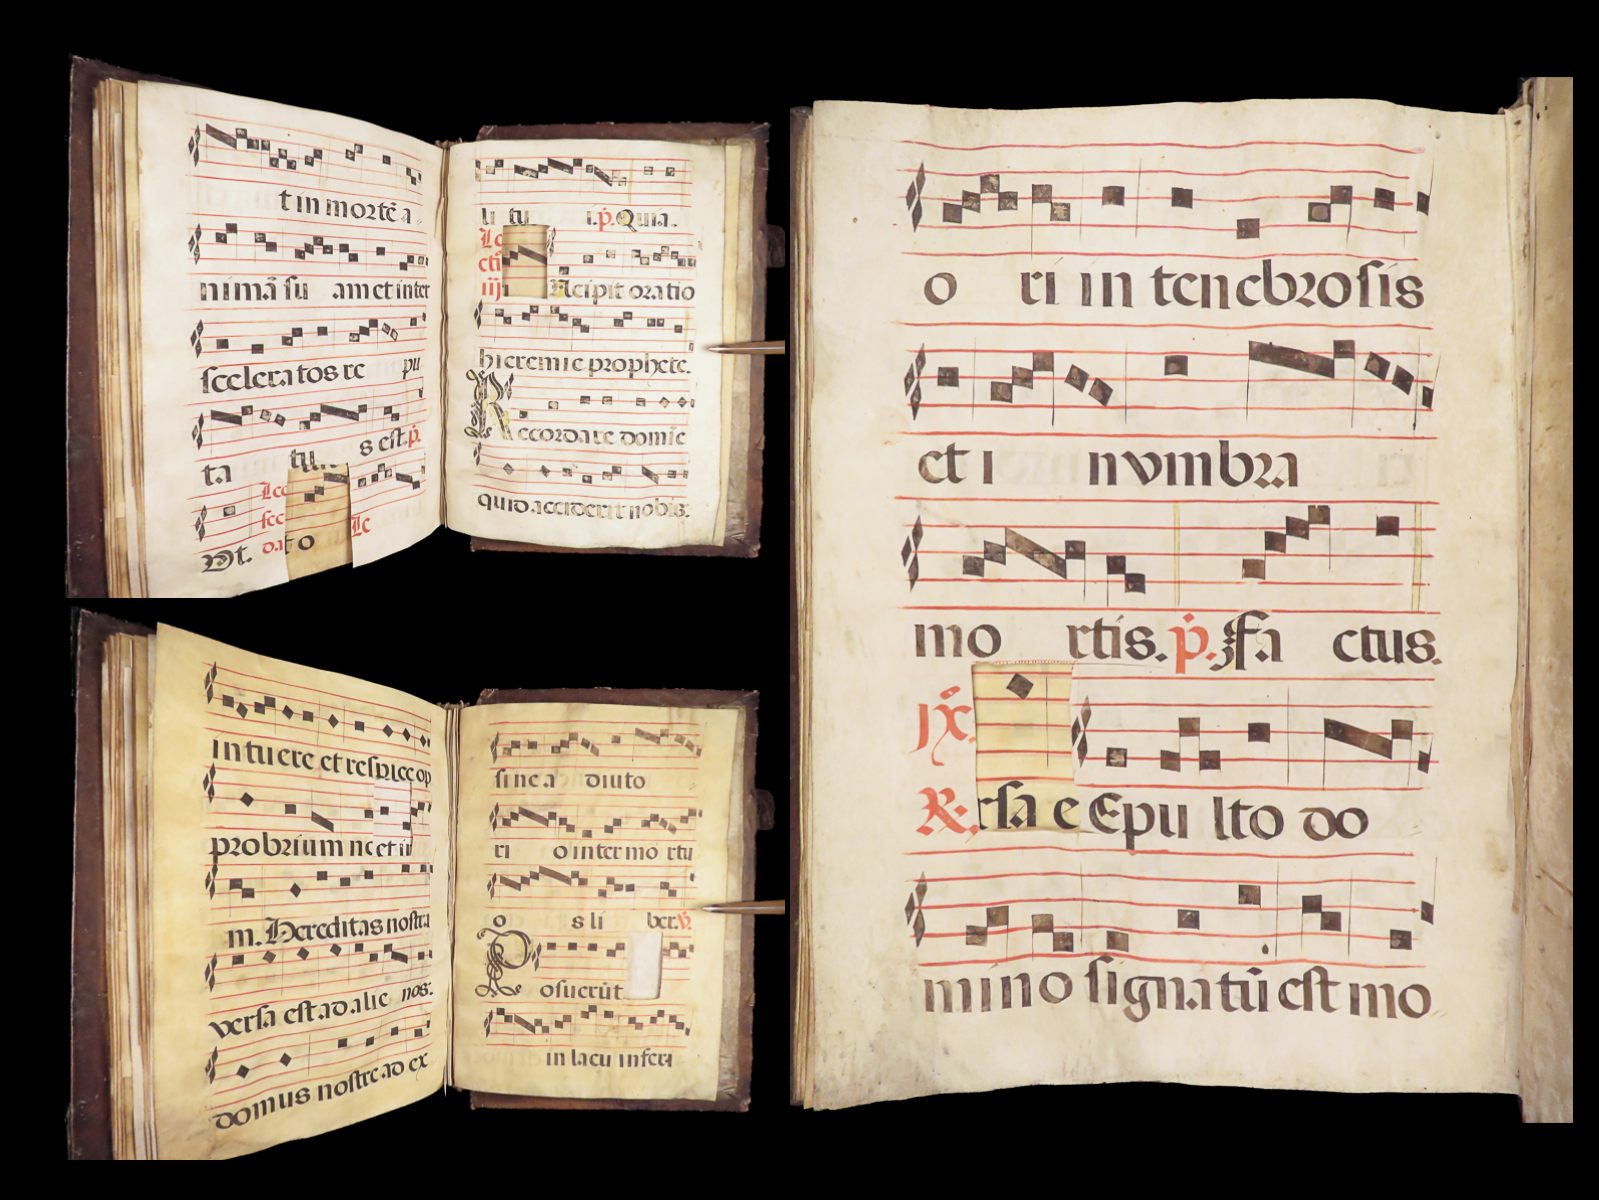 t in mortē a
nimā su am et inter
sceleratos re pu
ta tu s est. p̄.
Lec
sec
Vt. da t o Le
li tu i. p̄. Quia.
Le
cti
iij Ncipit oratio
hieremie prophete.
Recordare domīe
quid acciderit nobis.
intuere et respice op
probrium n et
m. Hereditas nostra
versa est ad alie nos.
domus nostre ad ex
sine a diuto
ri o inter mo rtu
o s li ber. v̄.
Posuerūt
in lacu inferi
o ri in tenebrosis
et i n vmbra
mo rtis. p̄. Fa ctus.
jx̄.
R. rsa e Epu lto do
mino signatū est mo